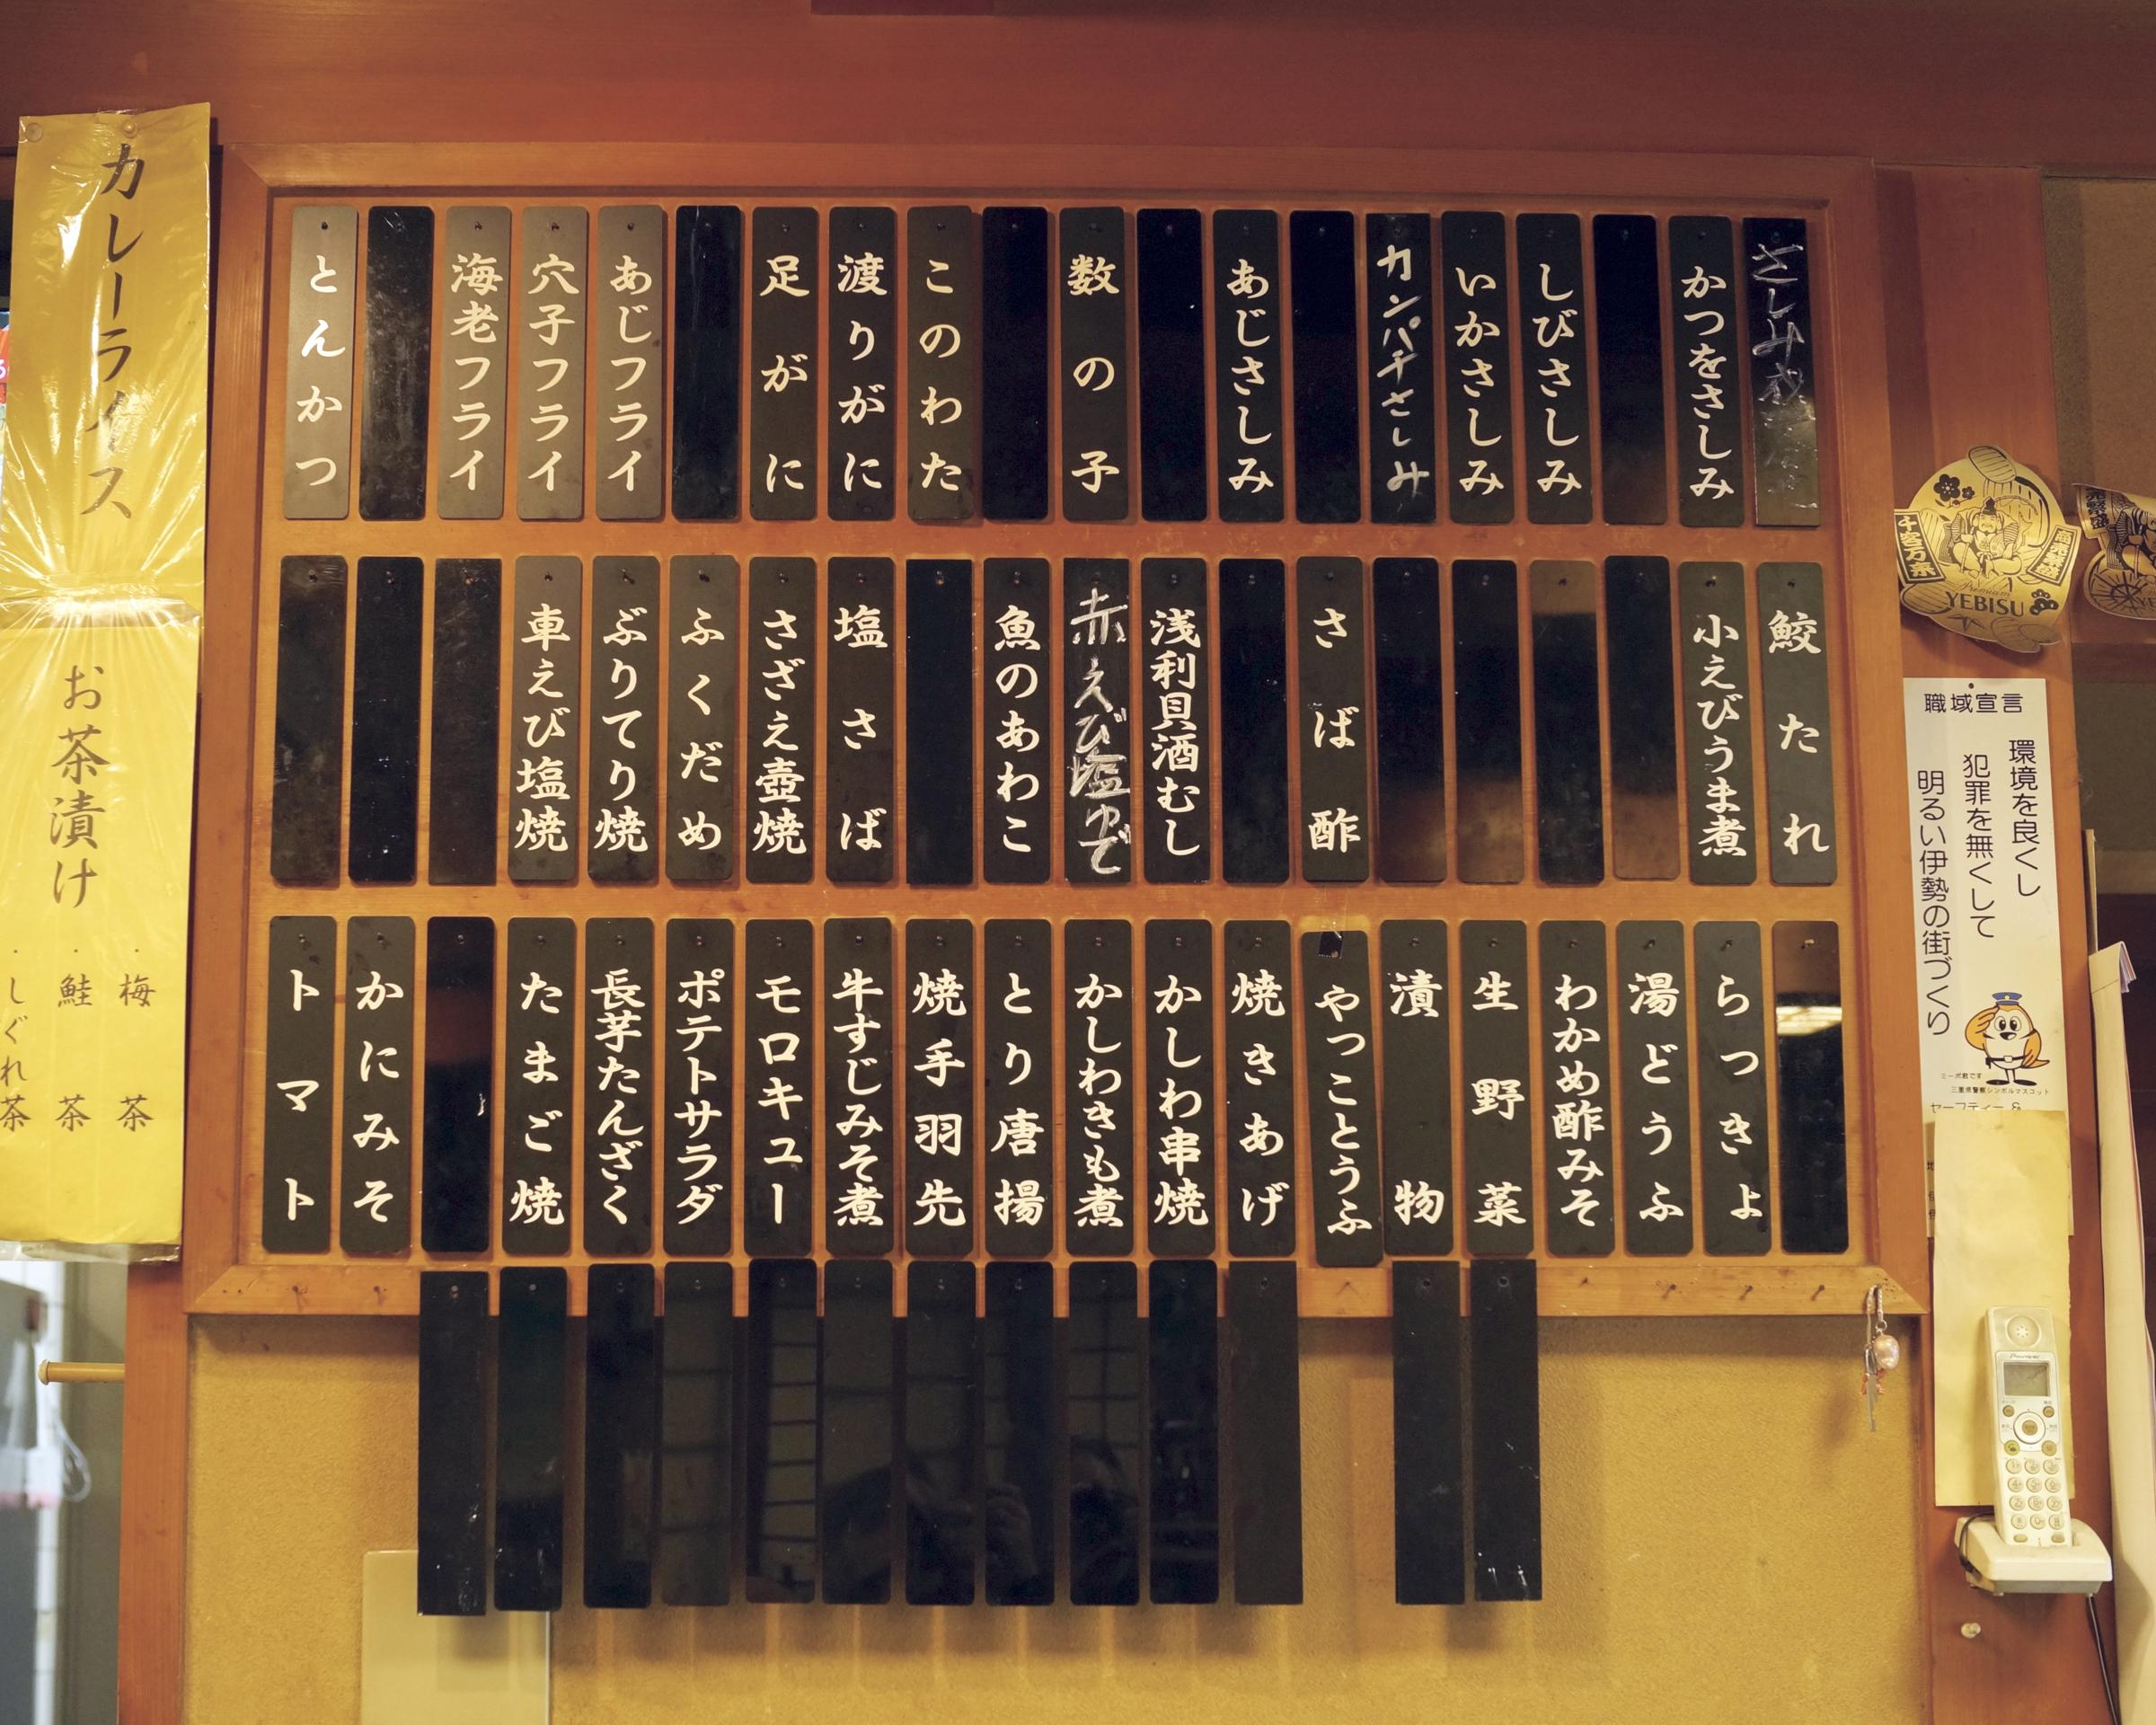 カレーライス
お茶漬け
・梅茶
・鮭茶
・しぐれ茶
かつをさしみ
しびさしみ
いかさしみ
カンパチさしみ
あじさしみ
数の子
このわた
渡りがに
足がに
あじフライ
穴子フライ
海老フライ
とんかつ
鮫たれ
小えびうま煮
さば酢
浅利貝酒むし
赤えび塩ゆで
魚のあわこ
塩さば
さざえ壺焼
ふくだめ
ぶりてり焼
車えび塩焼
らっきょ
湯どうふ
わかめ酢みそ
生野菜
漬物
やっことうふ
焼きあげ
かしわ串焼
かしわきも煮
とり唐揚
焼手羽先
牛すじみそ煮
モロキュー
ポテトサラダ
長芋たんざく
たまご焼
かにみそ
トマト
千客万来
商売繁盛
Premium
YEBISU
職域宣言
環境を良くし
犯罪を無くして
明るい伊勢の街づくり
三重県警察シンボルマスコット
セーフティー &
Pioneer